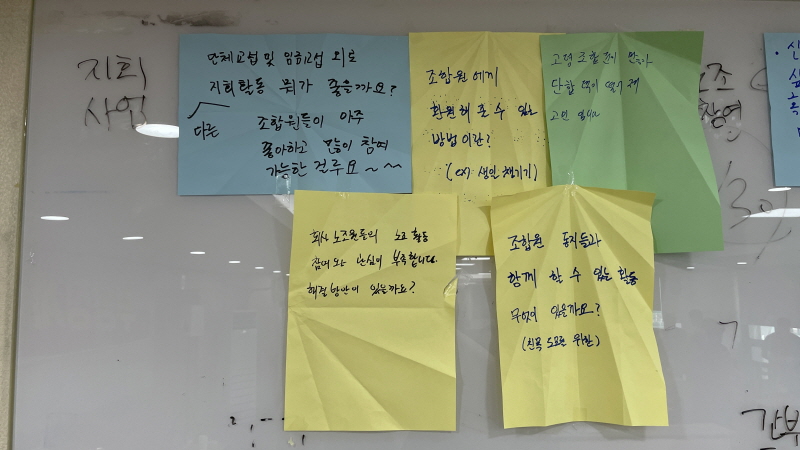 지회
사업
단체교섭 및 임금교섭 외로
지회활동 뭐가 좋을까요?
다른
조합원들이 아주
좋아하고 많이 참여
가능한 걸루요~~~
조합원에게
환원해 줄 수 있는
방법이란?
(ex) 생일 챙기기)
고령 조합원이 많아
단합
고민 입니다
회사 노조원들의 노조 활동
참여 또는 관심이 부족합니다.
해결방안이 있을까요?
조합원 동지들과
함께 할 수 있는 활동
무엇이 있을까요?
(친목 도모를 위한)
노조
참여
간부